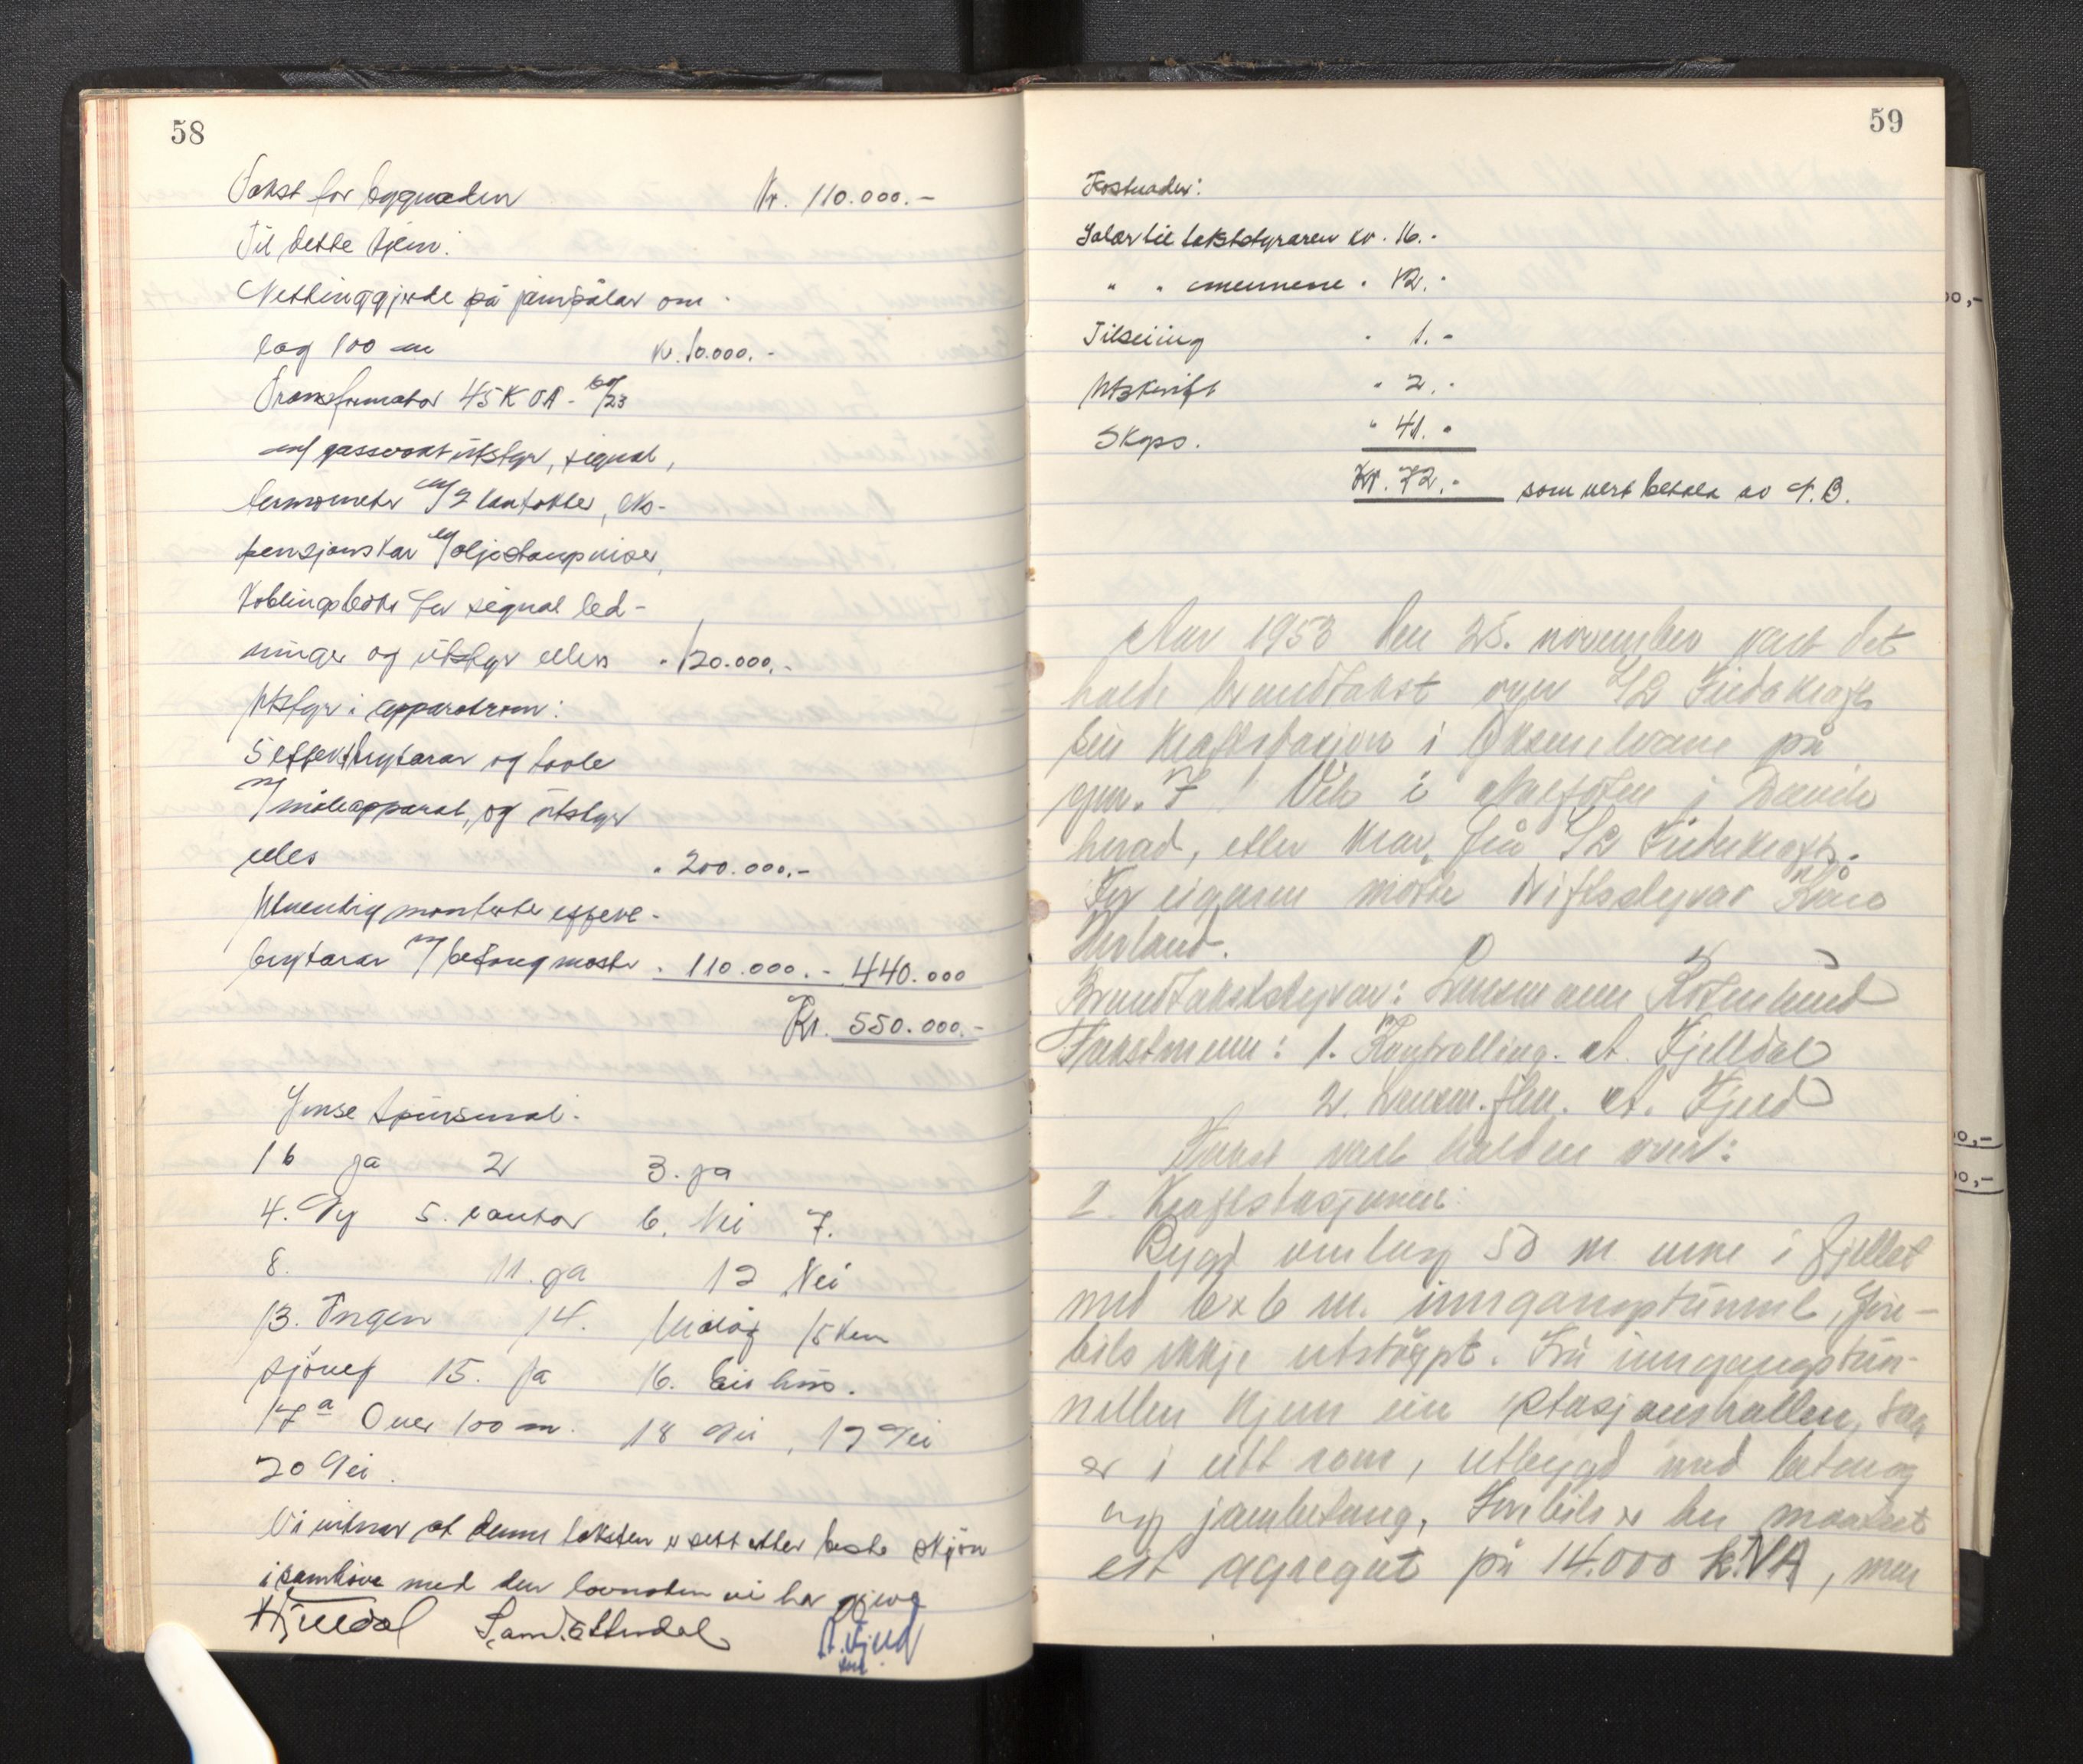 58
Takst for bygnaden Kr. 110.000.-
Til dette kjem:
Nettinggjerde på jernpålar om-
lag 100 m kr. 10.000.-
Transformator 45 KVA -
m/ gassvaktutstyr, signal,
termometer m/2 kontakter, eks-
pensjonskar m/oljestandsviser,
Koblingsboks for signal led-
ninger og utstyr elles " 120.000,-
Utstyr i apparatrom:
5 effektbrytarar og tavle
m/måleapparat, og utstyr
elles " 200.000,-
Utvendig monterte effekt-
brytarar m/betongmaster " 110.000.- 440.000
Kr. 550.000.-
Ymse spursmal:
1 b ja 2 3. ja
4. Ny 5. kontor 6. Nei 7.
8. 11. ja 12 Nei
13. Ingen 14. 15 km
sjöveg 15. Ja 16. Eit hus.
17a Over 100 m. 18 Nei, 19 Nei
20 Nei.
Vi vitnar at denne taksten er sett etter beste skjön
i samhöve med den lovnaden vi har gjeve
A. Fjeld
59
Kostnader:
Salær til takststyraren kr. 16.-
" " mennene " 12.-
Tilseiing " 1.-
Utskrift " 2.-
Skyss. " 41.-
Kr. 72.- som vert betala av N.B.
Aar 1953 den 25. november vart det
halde brandtakst over S/L Firdakraft
sin kraftstasjon i Öksenelvane på
gnr. 7 Vik i Ålfoten i Davik
herad, etter krav frå S/L Firdakraft.
For eigaren møtte driftsstyrar Kåre
Hovland.
Brandtakststyrar: Lensmann Rosenlund
Takstmenn: 1. Kontrolling. A. Fjelldal
2. Lensm.flm. A. Fjeld
Takst vart halden over:
1. Kraftstasjonen:
Bygd omlag 50 m inne i fjellet
med 6x6 m. inngangstunnel, fyre-
bils ikkje utstöypt. Frå inngangstun-
nellen kjem ein stasjonshallen, som
er i eitt rom, utbygd med betong
og jarnbetong. Fyrebils er her montert
eit agregat på 14.000 kVA, men